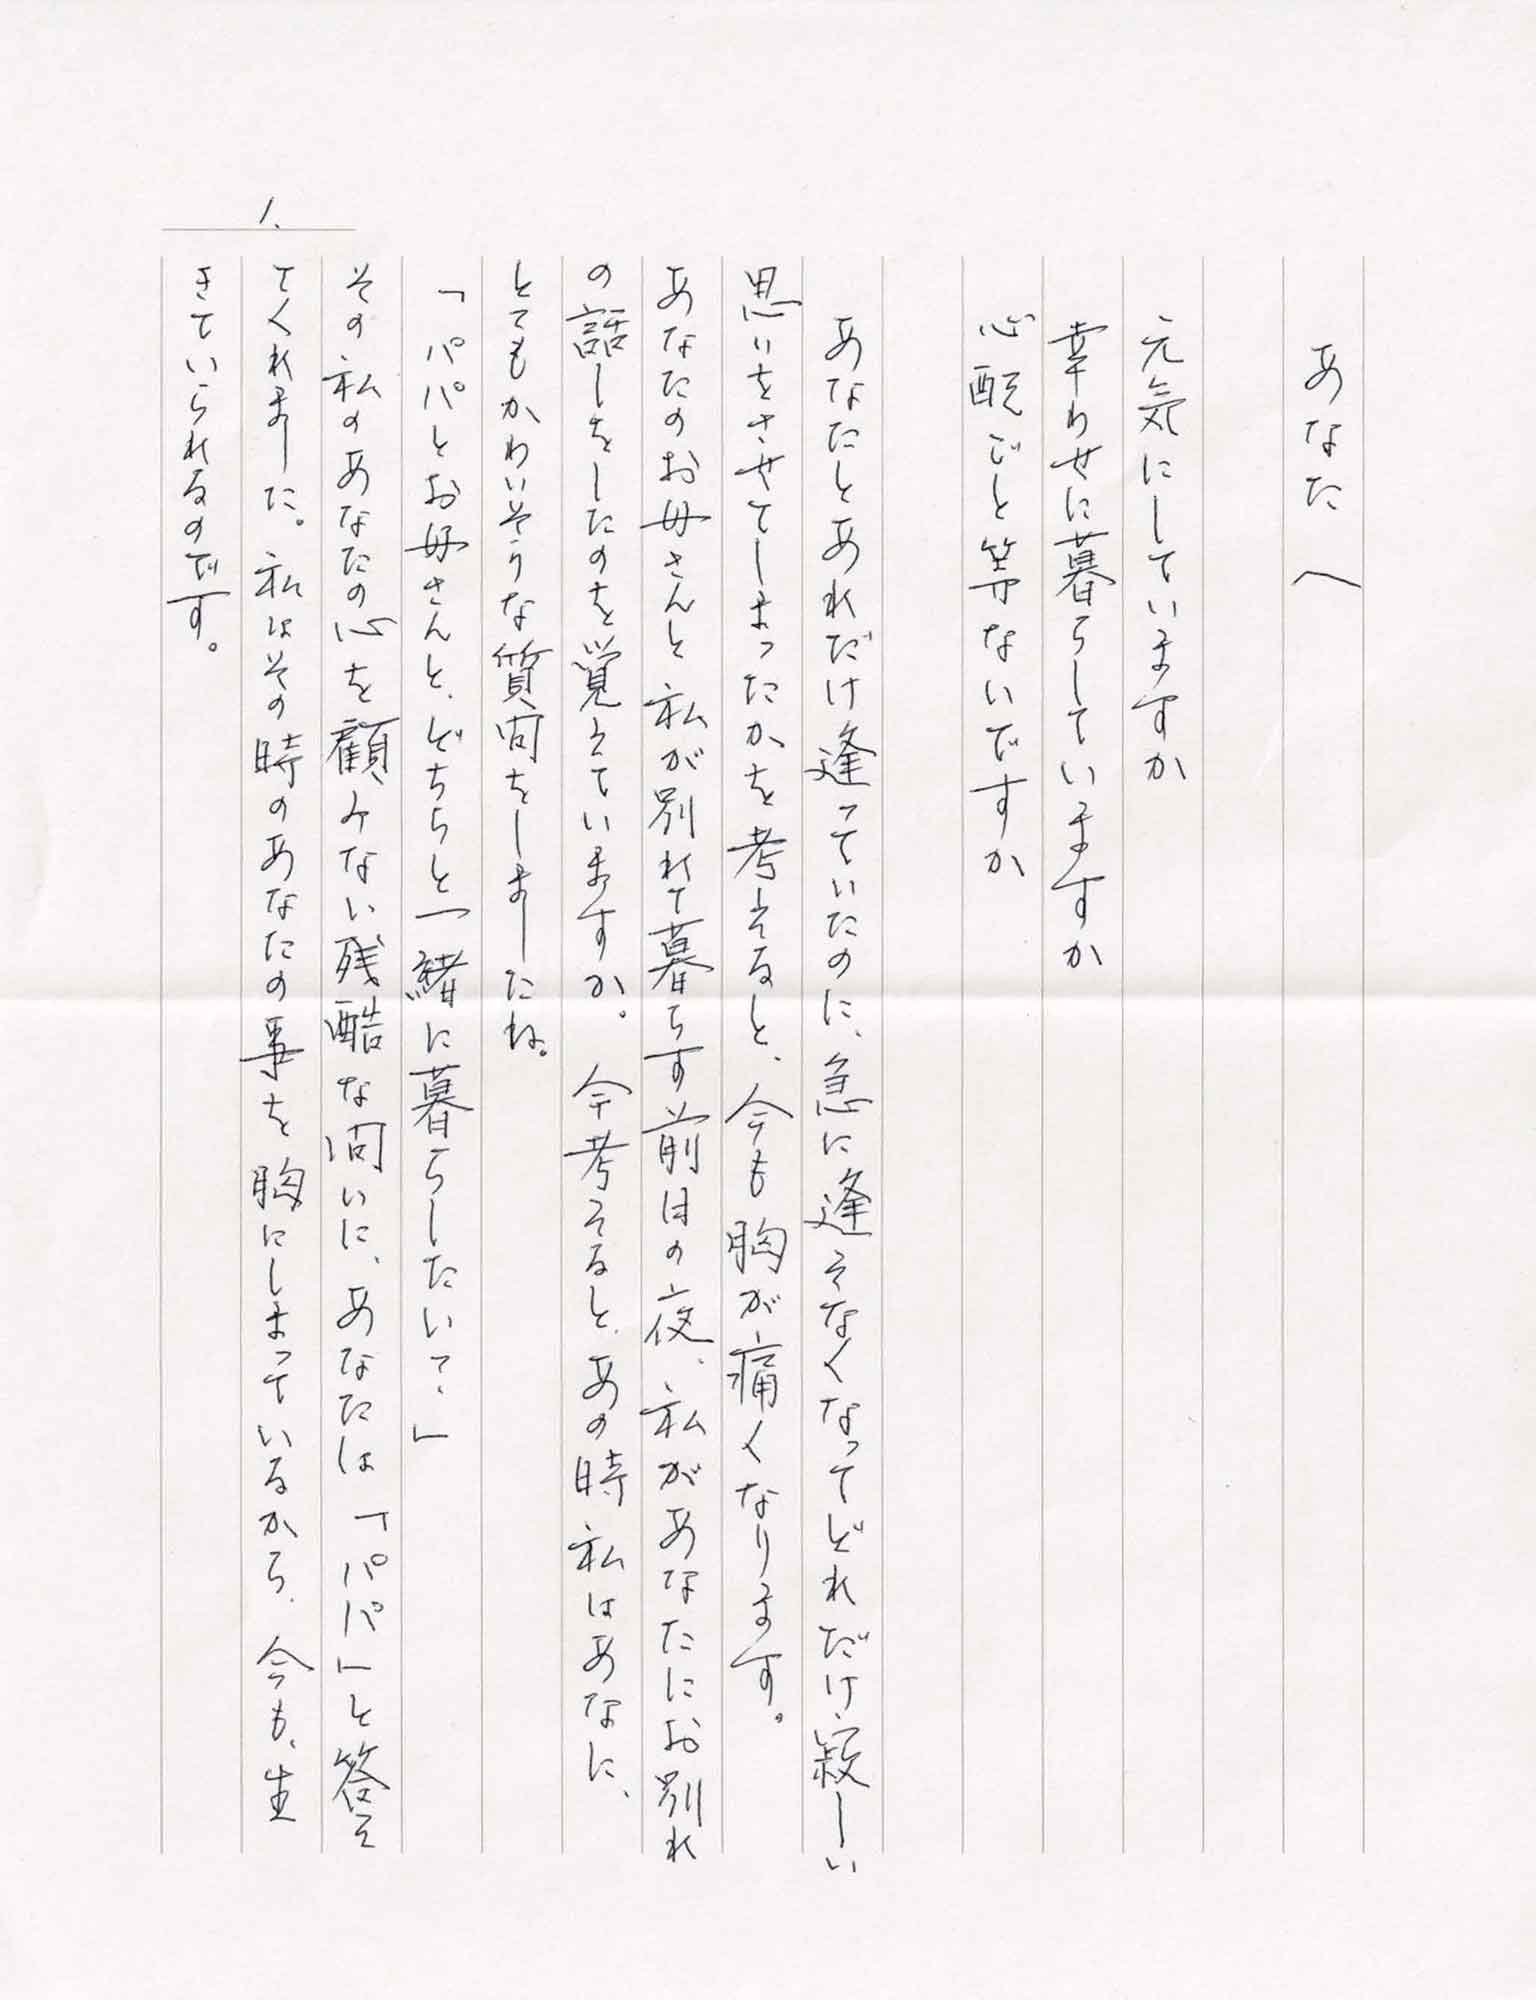 あなたへ
元気にしていますか
幸わせに暮らしていますか
心配ごと等ないですか
あなたとあれだけ逢っていたのに、急に逢えなくなってどれだけ寂しい
思いをさせてしまったかを考えると、今も胸が痛くなります。
あなたのお母さんと私が別れて暮らす前日の夜、私があなたにお別れ
の話しをしたのを覚えていますか。今考えると、あの時私はあなに、
とてもかわいそうな質問をしましたね。
「パパとお母さんと、どちらと一緒に暮らしたいて、」
その私のあなたの心を顧みない残酷な問いに、あなたは「パパ」と答え
てくれました。私はその時のあなたの事を胸にしまっているから、今も、生
きていられるのです。
1.